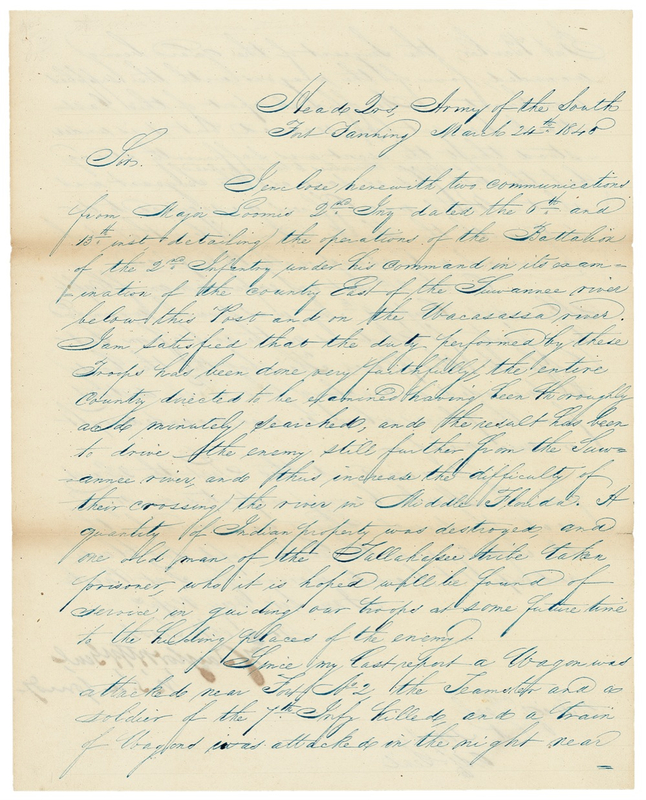 Head Qrs, Army of the South
Fort Fanning March 24th 1840
Sir.
I enclose herewith two communications
from Major Loomis 2nd Iny dated the 6th and
13th inst detailing the operations of the Battalion
of the 2nd Infantry under his command in its exam-
-ination of the country East of the Suwannee river
below this Post and on the Wacasassa river.
I am satisfied that the duty performed by these
Troops has been done very faithfully, the entire
Country directed to be examined having been thoroughly
and minutely searched, and the result has been
to drive the enemy still further from the Suw-
-annee river, and thus increase the difficulty of
their crossing the river in Middle Florida. A
quentity of Indian property was destroyed, and
one old man of the Tallahasee tribe taken
prisoner, who it is hoped will be found of
service in guiding our troops at some future time
to the hiding places of the enemy.
Since my last report a Wagon was
attacked near Fort No 2, the Teamster and a
soldier of the 7th Infy killed, and a train
of Wagons was attacked in the night near